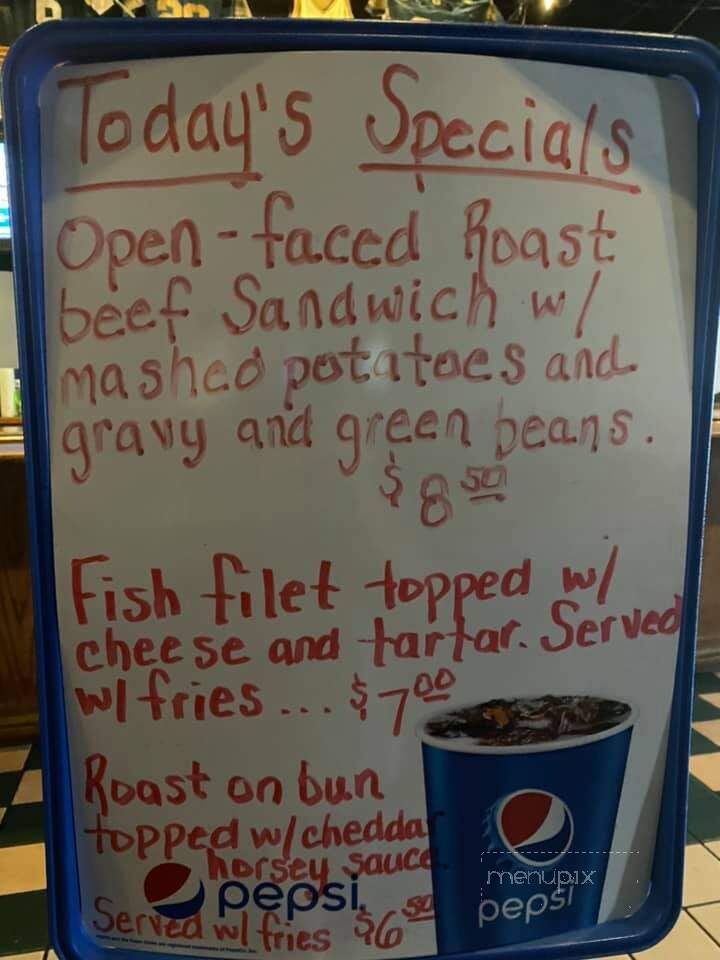 Today's Specials
Open-faced Roast
beef Sandwich w/
mashed potatoes and
gravy and green beans.
$8 50
Fish filet topped w/
cheese and tartar. Served
w/ fries ... $7 00
Roast on bun
topped w/cheddar
horsey sauce
pepsi
Served w/ fries $6 50
menupix
pepsi